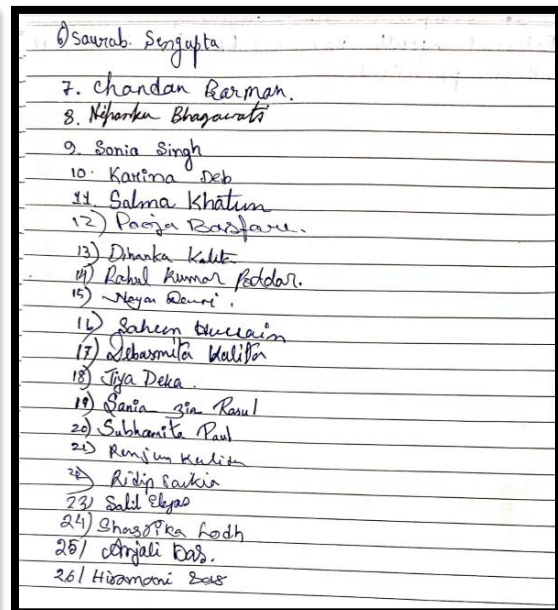 6) Saurab. Sengupta
7. Chandan Barman.
8. Nipanka Bhagawati
9. Sonia Singh
10. Karina Deb
11. Salma Khatun
12) Pooja Basfore.
13) Dihanka Kalita
14) Rahul Kumar Poddar.
15) Nayan Deuri.
16) Saheen Hussain
17) Debasmita Kalita
18) Jiya Deka.
19) Sania Zia Rasul
20) Subhamita Paul
21) Renjun Kalita
22) Ridip Saikia
23) Salil
24) Lodh
25) Anjali Das.
26) Hiramoni Das